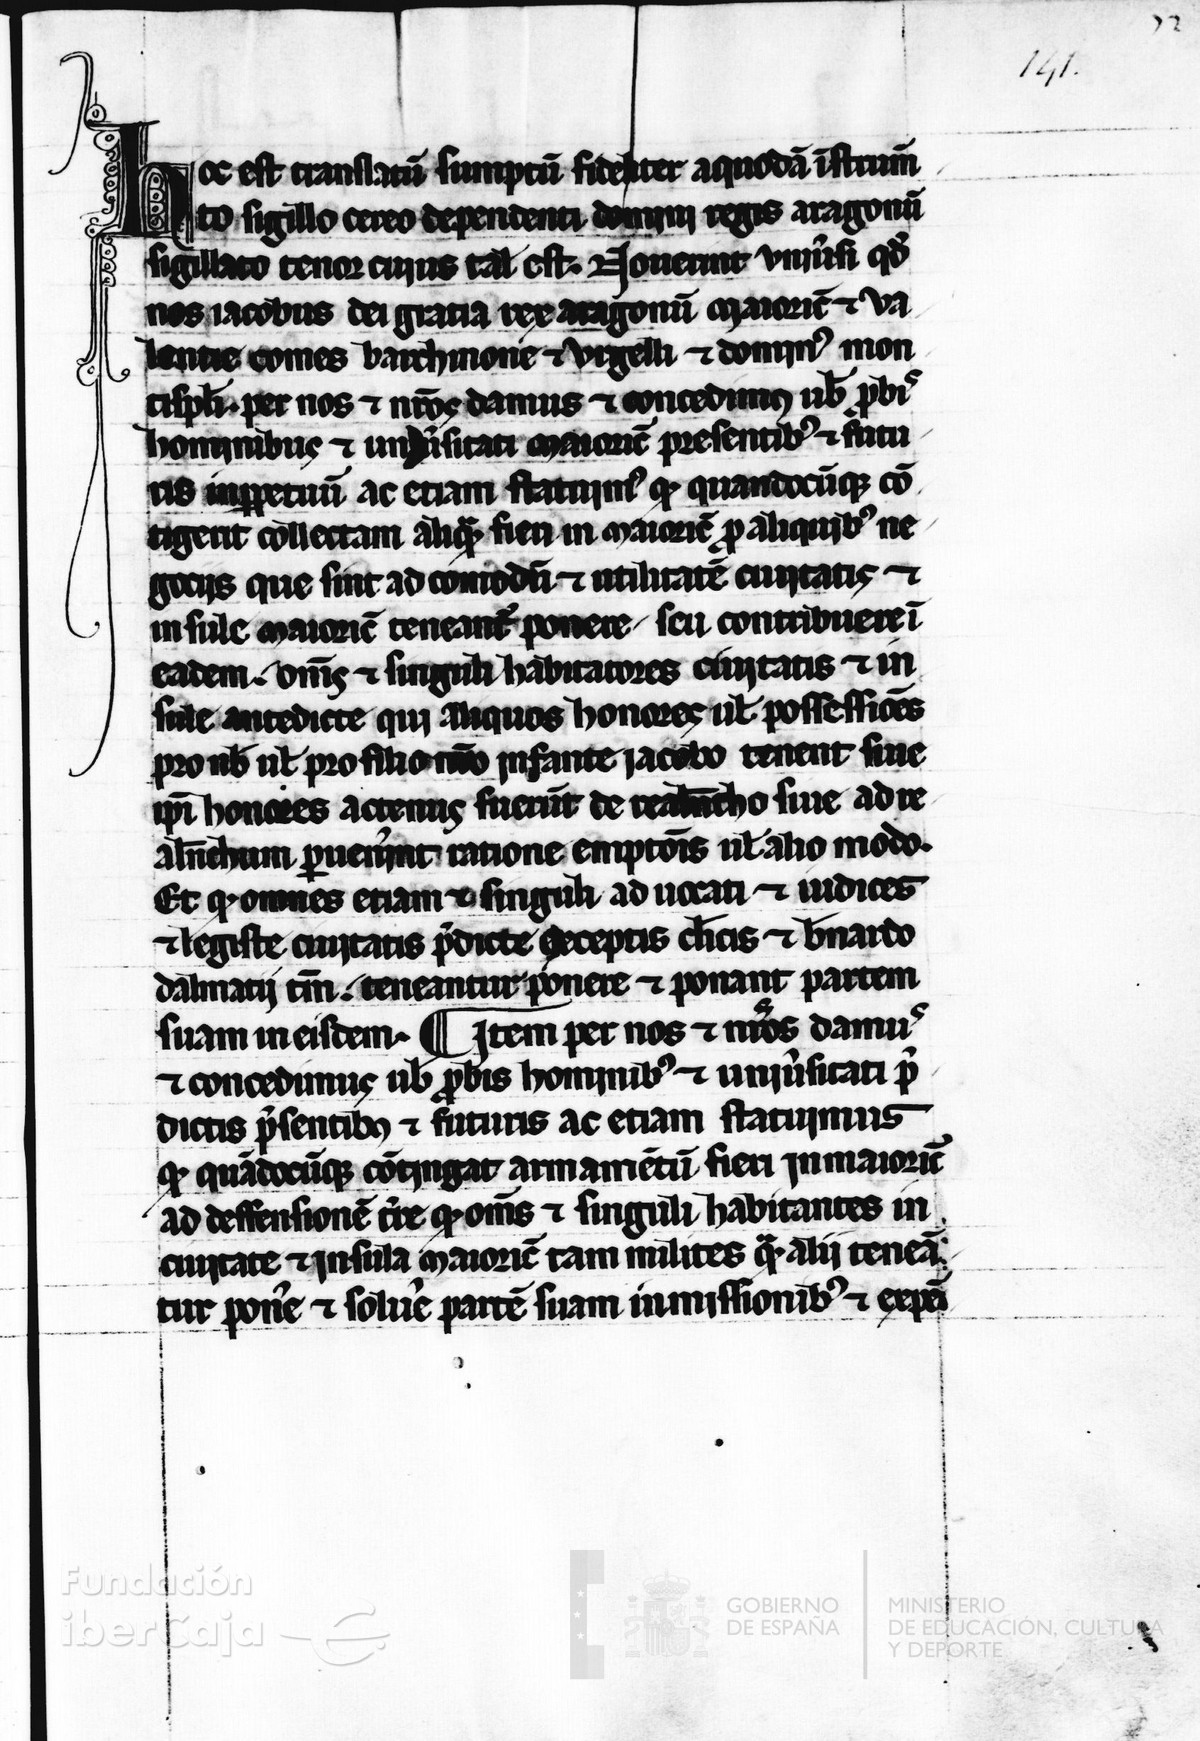 141.
hoc est translatū sumptū fideliter a quodā īstrum̄
to sigillo cereo dependenti domini regis aragonū
sigillato tenor cuius tal̄ est. Nouerint vniu̾si qd̾
nos iacobus dei gracia rex aragonū maioric̄ ⁊ va
lentie comes barchinone ⁊ vrgelli ⁊ domin᾽ mon
tispl̄i. per nos ⁊ nr̄os damus ⁊ concedimus ub̄ ꝓbis
hominibus ⁊ uniu̾sitati maioric̄ presentib᾽ ⁊ futu
ris inꝑpetuū ac etiam statuim᾽ ꝙ quandocūqꝫ cō
tigerit collectam aliquā fieri in maioric̄ ꝓ aliquib᾽ ne
gociis que sint ad comodū ⁊ utilitatē ciuitatis ⁊
insule maioric̄ teneant᾽ ponere / seu contribuere ī
eadem. om̄s ⁊ singuli habitatores ciuitatis ⁊ in
sule antedicte qui aliquos honores ul̄ possessiōes
pro nob̄ ul̄ pro filio nr̄o infante iacobo tenent siue
ip̄i honores actenus fuerūt de realēcho siue ad re
alēchum ꝑuenerint ratione emptōis ul̄ alio modo.
Et ꝙ omnes etiam ⁊ singuli aduocati ⁊ iudices
⁊ legiste ciuitatis p̄dicte exceptis cl̄icis ⁊ b̄nardo
dalmacij tm̄. teneantur ponere ⁊ ponant partem
suam in eisdem. ¶ Item per nos ⁊ nr̄os damus
⁊ concedimus ub̄ ꝓbis hominib᾽ ⁊ uniu̾sitati p̄
dictis p̄sentibus ⁊ futuris ac etiam statuimus
ꝙ quādocūqꝫ cōtingat armamētū fieri in maioric̄
ad deffensionē t̄re ꝙ om̄s ⁊ singuli habitantes in
ciuitate ⁊ insula maioric̄ tam milites quā alii teneā
tur pon̾e ⁊ solu̾e partē suam in missionib᾽ ⁊ expē
Fundación
iberCaja
GOBIERNO
DE ESPAÑA
MINISTERIO
DE EDUCACIÓN, CULTURA
Y DEPORTE